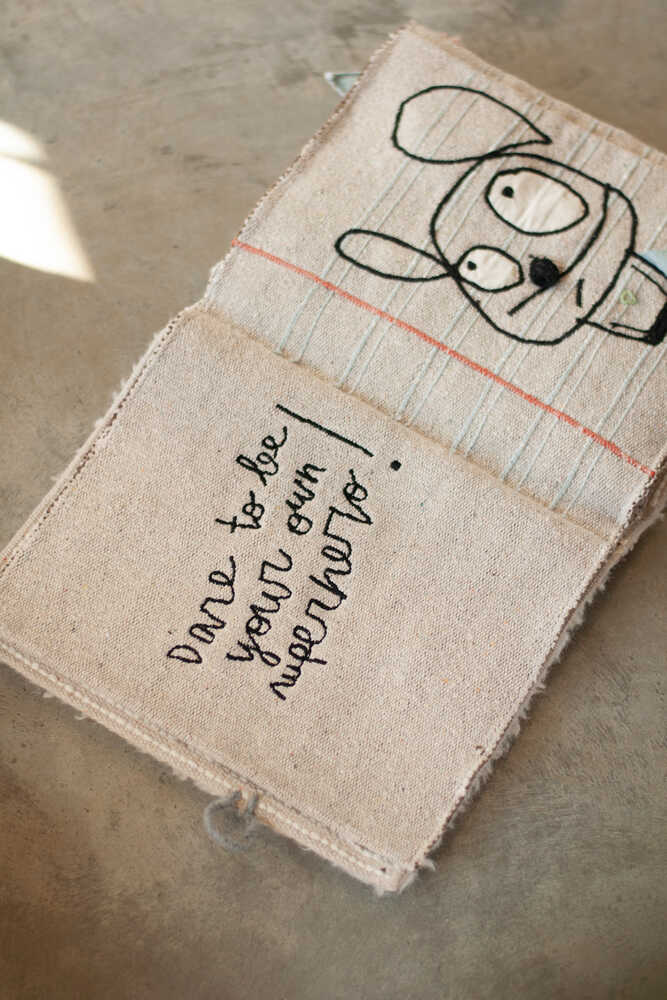 Dare to be
your own
superhero!